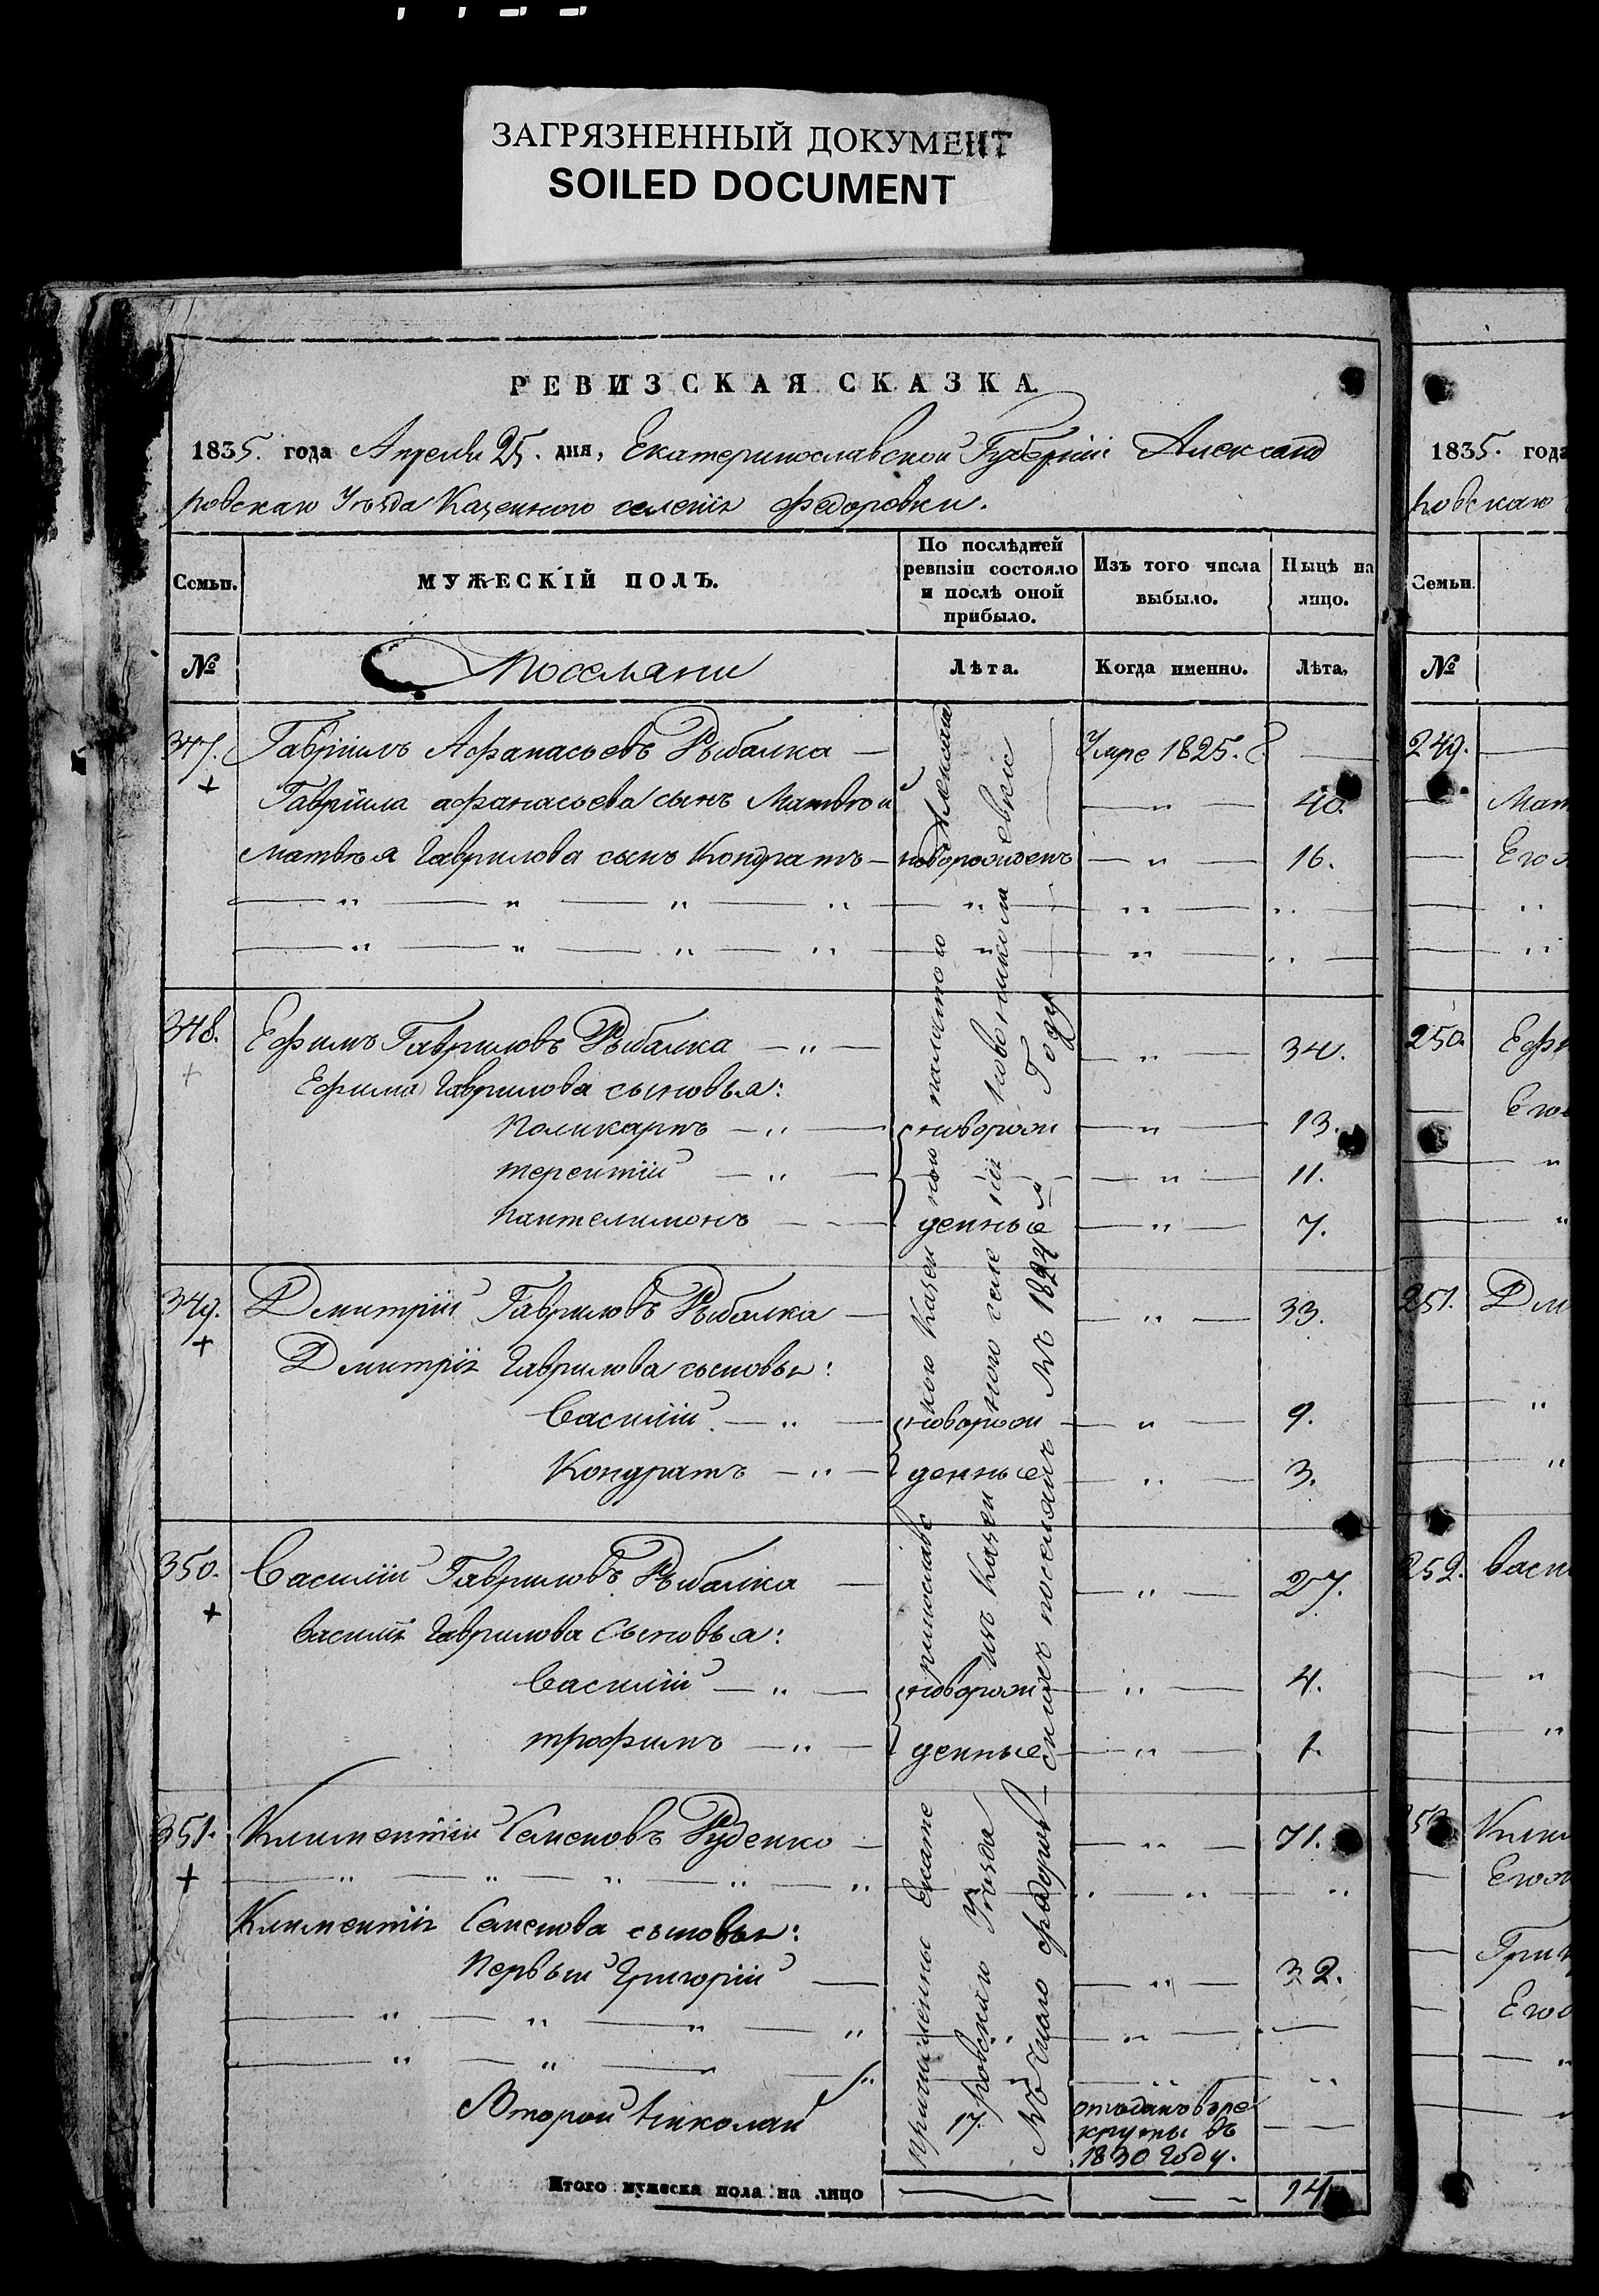 ЗАГРЯЗНЕННЫЙ ДОКУМЕНТ
SOILED DOCUMENT
РЕВИЗСКАЯ СКАЗКА
1835. года Апреля 25. дня, Екатеринославской Губерніи Александ
ровскаго Уѣзда Казенного селенія Федоровки.
Семьи.
МУЖЕСКІЙ ПОЛЪ.
По послѣдней
ревизіи состояло
и послѣ оной
прибыло.
Изъ того числа
выбыло.
Нынѣ на
лицо.
№
Поселяни
Лѣта.
Когда именно.
Лѣта,
347. Гавріилъ Афанасьевъ Рыбалка — Умре 1825. —
+ Гавріила афанасьева сынъ Матвѣй — „ — 40.
Матвѣя Гаврилова сынъ Кондратъ — новорожденъ — „ — 16.
348. Ефимъ Гавриловъ Рыбалка — „ — — „ — 34.
+ Ефима Гаврилова сыновья:
Поликарпъ — „ — новорож — „ — 13.
терентій — „ — — „ — 11.
пантелимонъ — — денные — „ — 7.
349. Дмитрій Гавриловъ Рыбалка — — „ — 33.
+ Дмитрія Гаврилова сыновья:
Василій — „ — новорож — „ — 9.
Кондратъ — „ — денные — „ — 3.
350. Василій Гавриловъ Рыбалка — — „ — 27.
+ Василія Гаврилова Сыновья:
Василій — „ — новорож — „ — 4.
трофимъ — „ — денные — „ — 1.
351. Климентій Семеновъ Руденко — — „ — 71.
+
Климентія Семенова сыновья:
Первый Григорій — — „ — 32.
Второй Николай 17. отданъ в ре
круты въ
1830 году.
Итого мужеска пола на лицо — — 14
причислены Екате
ринослав
ного Казен
ного
ровскаго Уѣзда
изъ Казен
ного селе
нія новониколаевки
сихъ поселянъ въ 1824 м
Году
1835. года
ровскаго
Семьи.
№
249. —
Мат
Его
250. Ефи
Его
251. Дми
252. Васи
Клим
Его
Григ
Его